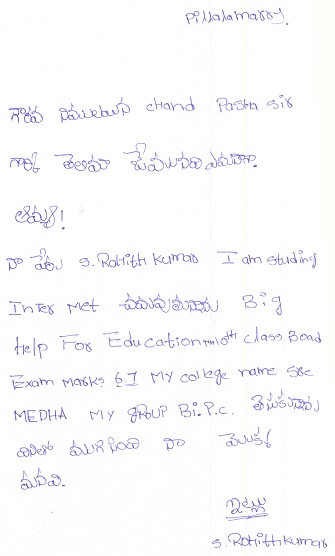 Pillalamarry.
గౌరవ chand Pasha sir
గారికి
అయ్యా!
నా పేరు S. Rohith kumar I am studing
Inter Met చదువుతున్నాను Big
Help For Education 10th class Boad
Exam Marks 6.7 My college name Sre
MEDHA MY GROUP Bi.P.C. తీసుకున్నాను
ఇంతటితో ముగిస్తుంది నా యొక్క
మనవి.
ఇట్లు
S. Rohithkumar